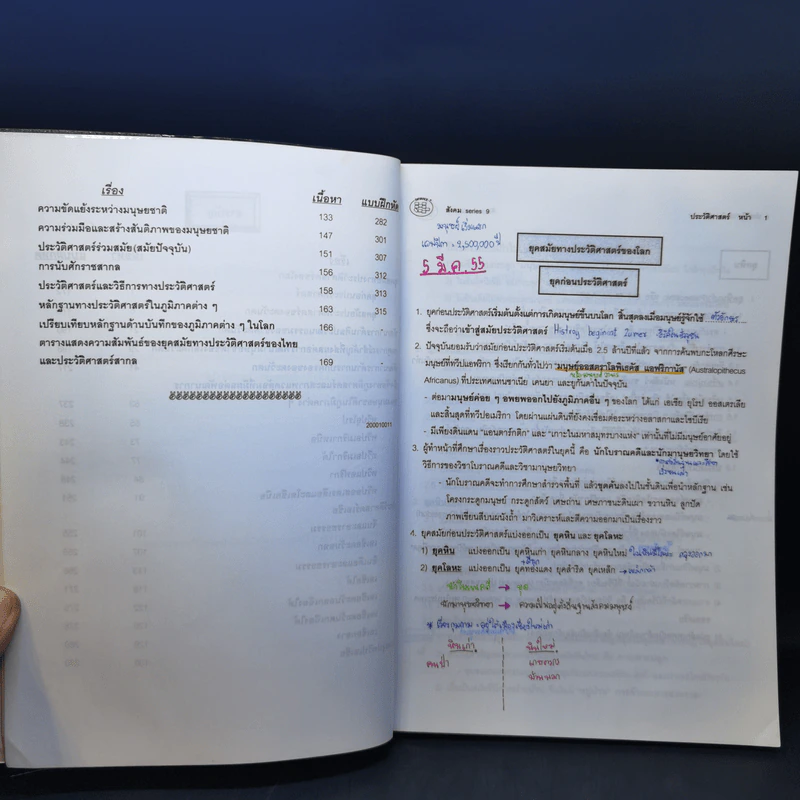 เรื่อง เนื้อหา แบบฝึกหัด
ความขัดแย้งระหว่างมนุษยชาติ 133 282
ความร่วมมือและสร้างสันติภาพของมนุษยชาติ 147 301
ประวัติศาสตร์ร่วมสมัย(สมัยปัจจุบัน) 151 307
การนับศักราชสากล 156 312
ประวัติศาสตร์และวิธีการทางประวัติศาสตร์ 158 313
หลักฐานทางประวัติศาสตร์ในภูมิภาคต่าง ๆ 163 315
เปรียบเทียบหลักฐานด้านบันทึกของภูมิภาคต่าง ๆ ในโลก 166 -
ตารางแสดงความสัมพันธ์ของยุคสมัยทางประวัติศาสตร์ของไทย
และประวัติศาสตร์สากล 169 -
200010011
สังคม series 9 ประวัติศาสตร์ หน้า 1
มนุษย์เริ่มแรก
2,500,000 ปี
5 มี.ค. 55
ยุคสมัยทางประวัติศาสตร์ของโลก
ยุคก่อนประวัติศาสตร์
1. ยุคก่อนประวัติศาสตร์เริ่มต้นตั้งแต่การเกิดมนุษย์ขึ้นบนโลก สิ้นสุดลงเมื่อมนุษย์รู้จักใช้ ตัวอักษร
ซึ่งจะถือว่าเข้าสู่สมัยประวัติศาสตร์
2. ปัจจุบันยอมรับว่าสมัยก่อนประวัติศาสตร์เริ่มต้นเมื่อ 2.5 ล้านปีที่แล้ว จากการค้นพบกะโหลกศีรษะ
มนุษย์ที่ทวีปแอฟริกา ซึ่งเรียกกันทั่วไปว่า "มนุษย์ออสตราโลพิเธคัส แอฟริกานัส" (Australopithecus
Africanus) ที่ประเทศแทนซาเนีย เคนยา และยูกันดาในปัจจุบัน
- ต่อมามนุษย์ค่อย ๆ อพยพออกไปยังภูมิภาคอื่น ๆ ของโลก ได้แก่ เอเชีย ยุโรป ออสเตรเลีย
และสิ้นสุดที่ทวีปอเมริกา โดยผ่านแผ่นดินที่ยังคงเชื่อมต่อระหว่างอลาสกาและไซบีเรีย
- มีเพียงดินแดน "แอนตาร์กติก" และ "เกาะในมหาสมุทรบางแห่ง" เท่านั้นที่ไม่มีมนุษย์อาศัยอยู่
3. ผู้ทำหน้าที่ศึกษาเรื่องราวประวัติศาสตร์ในยุคนี้ คือ นักโบราณคดีและนักมานุษยวิทยา โดยใช้
วิธีการของวิชาโบราณคดีและวิชามานุษยวิทยา
- นักโบราณคดีจะทำการศึกษาสำรวจพื้นที่ แล้วขุดค้นลงไปในชั้นดินเพื่อนำหลักฐาน เช่น
โครงกระดูกมนุษย์ กระดูกสัตว์ เศษถ่าน เศษภาชนะดินเผา ขวานหิน ลูกปัด
ภาพเขียนสีบนผนังถ้ำ มาวิเคราะห์และตีความออกมาเป็นเรื่องราว
4. ยุคสมัยก่อนประวัติศาสตร์แบ่งออกเป็น ยุคหิน และ ยุคโลหะ
1) ยุคหิน แบ่งออกเป็น ยุคหินเก่า ยุคหินกลาง ยุคหินใหม่
2) ยุคโลหะ แบ่งออกเป็น ยุคทองแดง ยุคสำริด ยุคเหล็ก
นักโบราณคดี → ขุด
นักมานุษยวิทยา →
หินเก่า หินใหม่
คนป่า